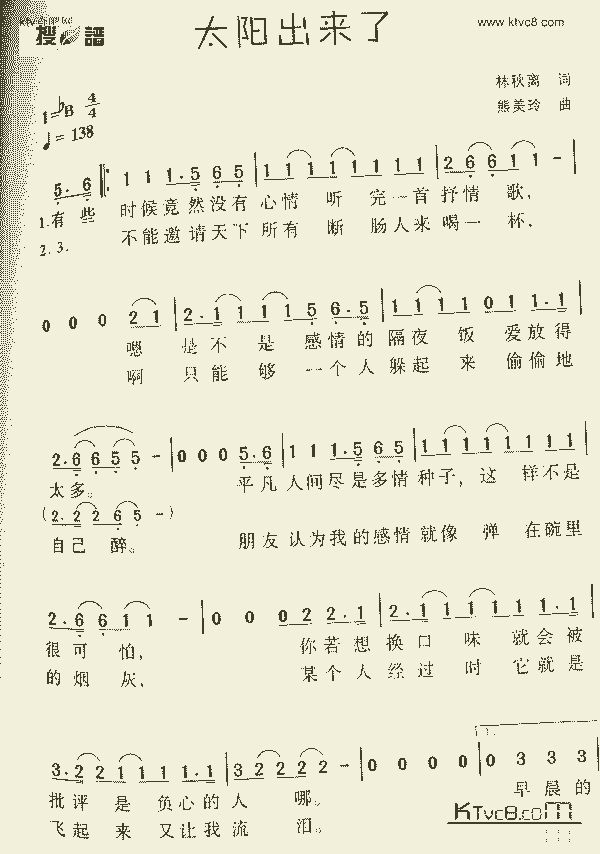 搜谱
www.ktvc8.com
太阳出来了
林秋离 词
熊美玲 曲
1=♭B 4/4
♩=138
5. 6 1 1 1.5 6 5 1 1 1 1 1 1 1 1 2 6 6 1 1 -
1.有些 时候竟然没有心情听完一首抒情歌,
2.3. 不能邀请天下所有断肠人来喝一杯,
0 0 0 2 1 2.1 1 1 1 5 6.5 1 1 1 1 0 1 1.1
嗯 是不是感情的隔夜饭 爱放得
啊 只能够一个人躲起来 偷偷地
2.6 6 5 5 - 0 0 0 5.6 1 1 1.5 6 5 1 1 1 1 1 1 1
太多。 平凡人间尽是多情种子,这样不是
(2.2 2 6 5 -)
自己醉。 朋友认为我的感情就像弹在碗里
2.6 6 1 1 - 0 0 0 2 2 2.1 2.1 1 1 1 1 1.1
很可怕, 你若想换口味就会被
的烟灰, 某个人经过时它就是
3.2 2 1 1 1 1.1 3 2 2 2 2 - 0 0 0 0 0 3 3 3
1.
批评是负心的人哪。 早晨的
飞起来又让我流泪。
KTvc8.com